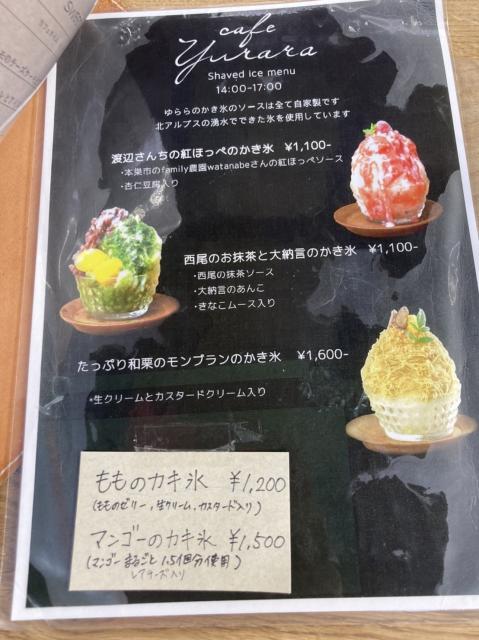 cafe
Yurara
Shaved ice menu
14:00-17:00
ゆららのかき氷のソースは全て自家製です
北アルプスの湧水でできた氷を使用しています
渡辺さんちの紅ほっぺのかき氷 ¥1,100-
・本巣市のfamily農園watanabeさんの紅ほっぺソース
・杏仁豆腐入り
西尾のお抹茶と大納言のかき氷 ¥1,100-
・西尾の抹茶ソース
・大納言のあんこ
・きなこムース入り
たっぷり和栗のモンブランのかき氷 ¥1,600-
*生クリームとカスタードクリーム入り
もものカキ氷 ¥1,200
(もものゼリー,生クリーム,カスタード入り)
マンゴーのカキ氷 ¥1,500
(マンゴーまるごと1.5個分使用)
レアチーズ入り